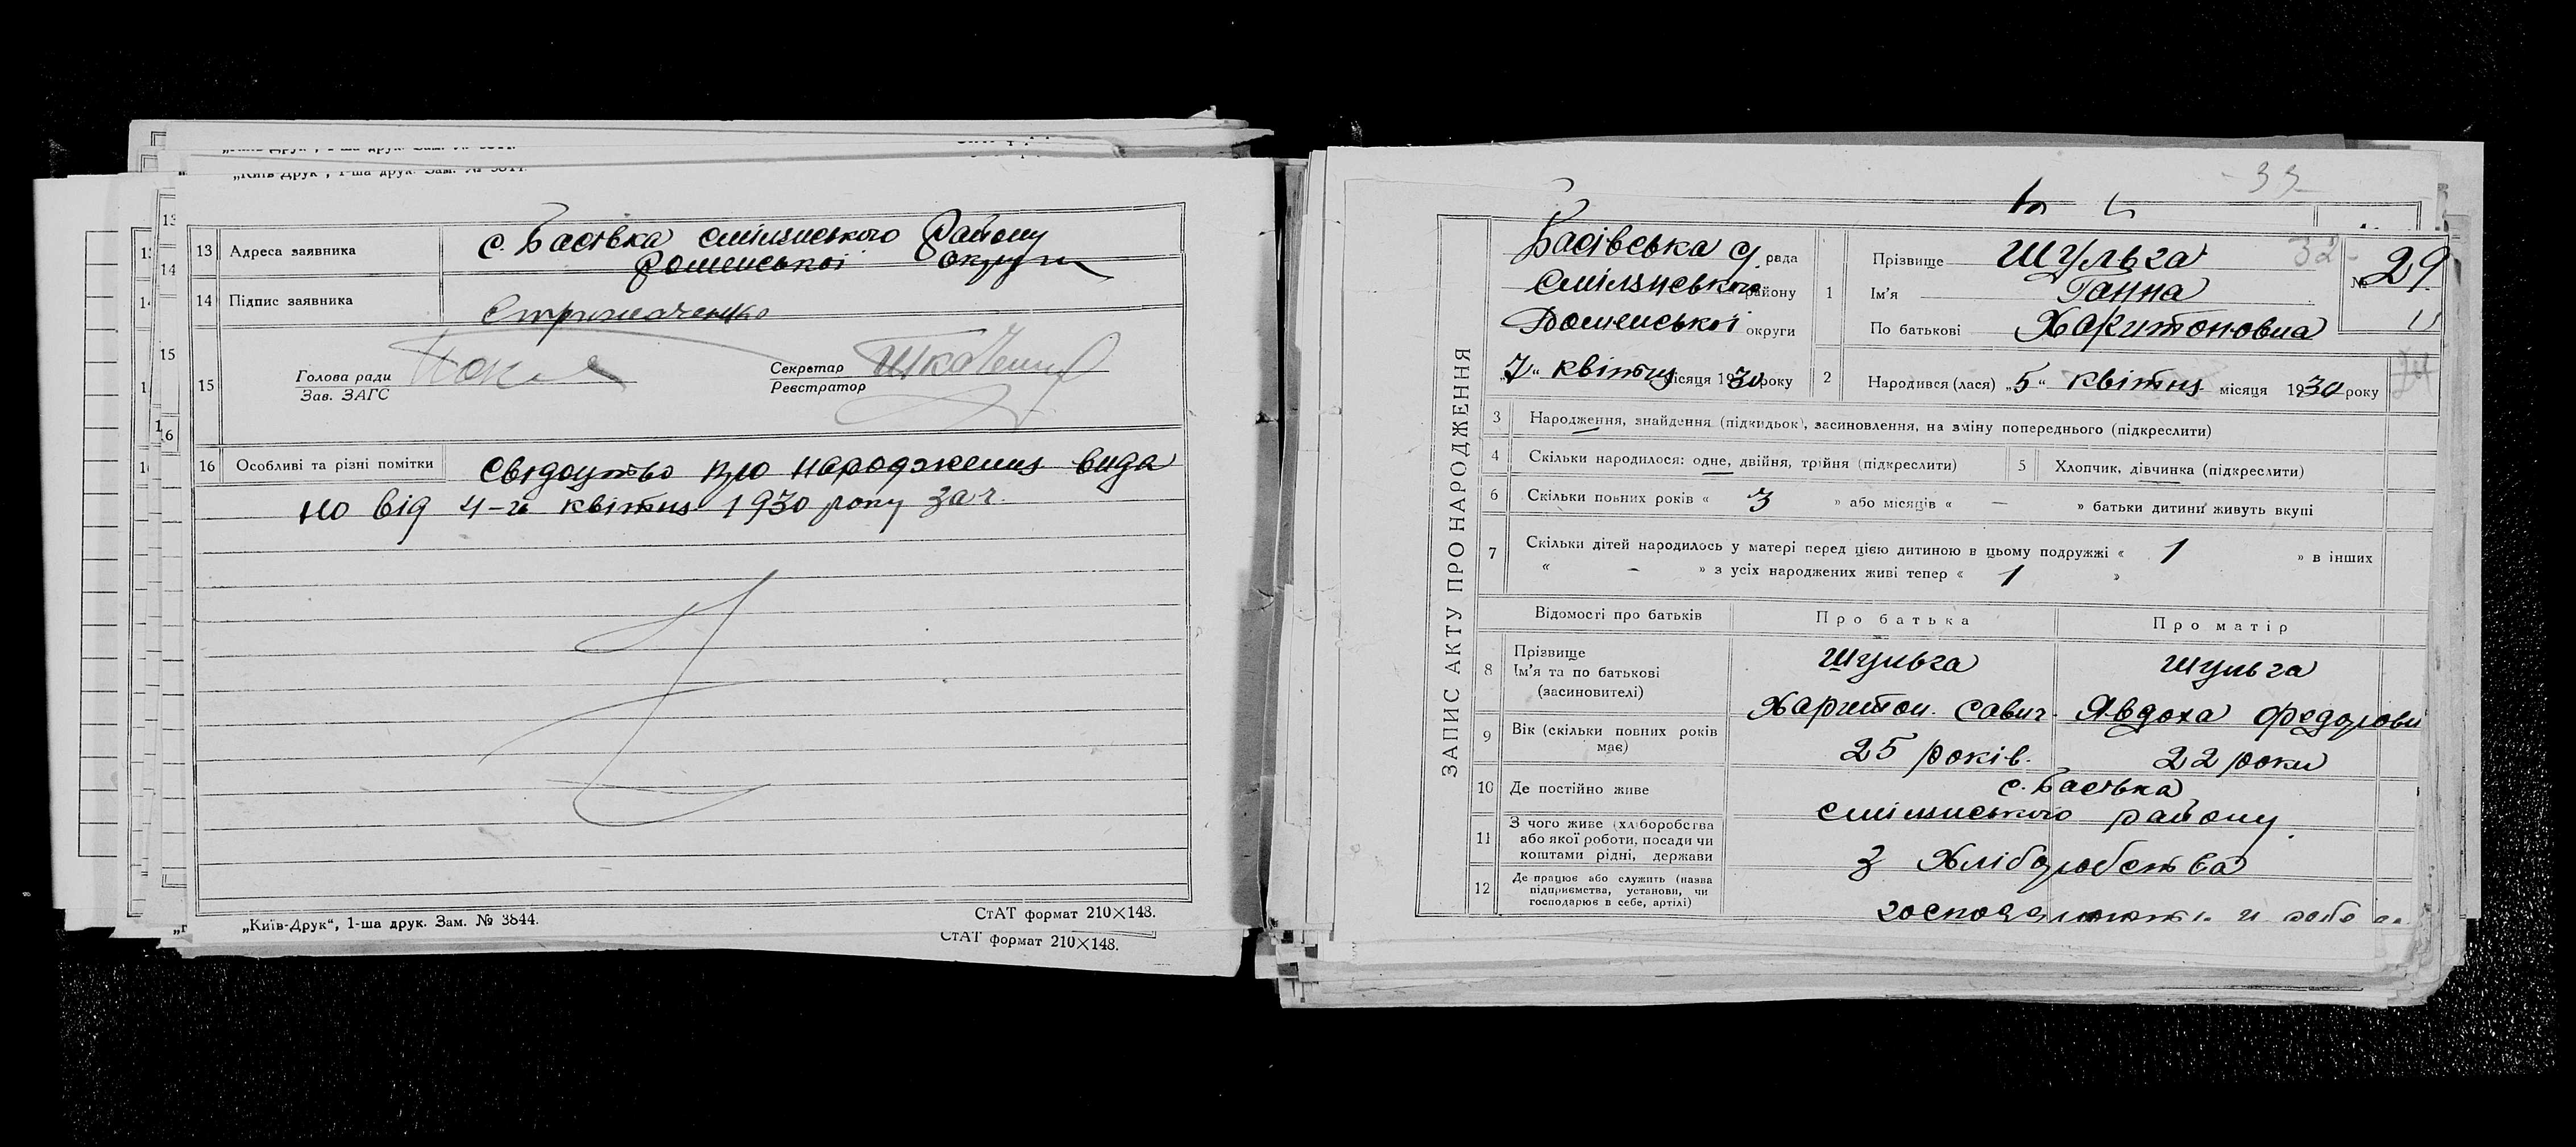 „Київ-Друк“, 1-ша друк. Зам. № 3844.
13 Адреса заявника с. Басівка Смілянського Району
Роменської округи
14 Підпис заявника
15 Голова ради
Зав. ЗАГС
Секретар
Реєстратор
16 Особливі та різні помітки Свідоцтво про народження вида
но від 4-и квітня 1930 року за ч.
„Київ-Друк“, 1-ша друк. Зам. № 3844.
СтАТ формат 210×148.
СтАТ формат 210×148.
33
ЗАПИС АКТУ ПРО НАРОДЖЕННЯ
Басівська С/ рада
Смілянського району
Роменської округи
„7“ квітня місяця 1930 року
1 Прізвище Шульга
Ім'я Ганна
По батькові Харитоновна
32
№ 29
2 Народився (лася) „5“ квітня місяця 1930 року
3 Народження, знайдення (підкидьок), засиновлення, на зміну попереднього (підкреслити)
4 Скільки народилося: одне, двійня, трійня (підкреслити)
5 Хлопчик, дівчинка (підкреслити)
6 Скільки повних років « 3 » або місяців « — » батьки дитини живуть вкупі
7 Скільки дітей народилось у матері перед цією дитиною в цьому подружжі « 1 » в інших
« – » з усіх народжених живі тепер « 1 »
Відомості про батьків Про батька Про матір
8 Прізвище Шульга Шульга
Ім'я та по батькові
(засиновителі)
Харитон Савич Явдоха Федорови
9 Вік (скільки повних років має) 25 років. 22 роки
10 Де постійно живе с. Басівка
Смілянського району
11 З чого живе (хліборобства
або якої роботи, посади чи
коштами рідні, держави
З Хліборобства
12 Де працює або служить (назва
підприємства, установи, чи
господарює в себе, артілі)
господарюють в себе